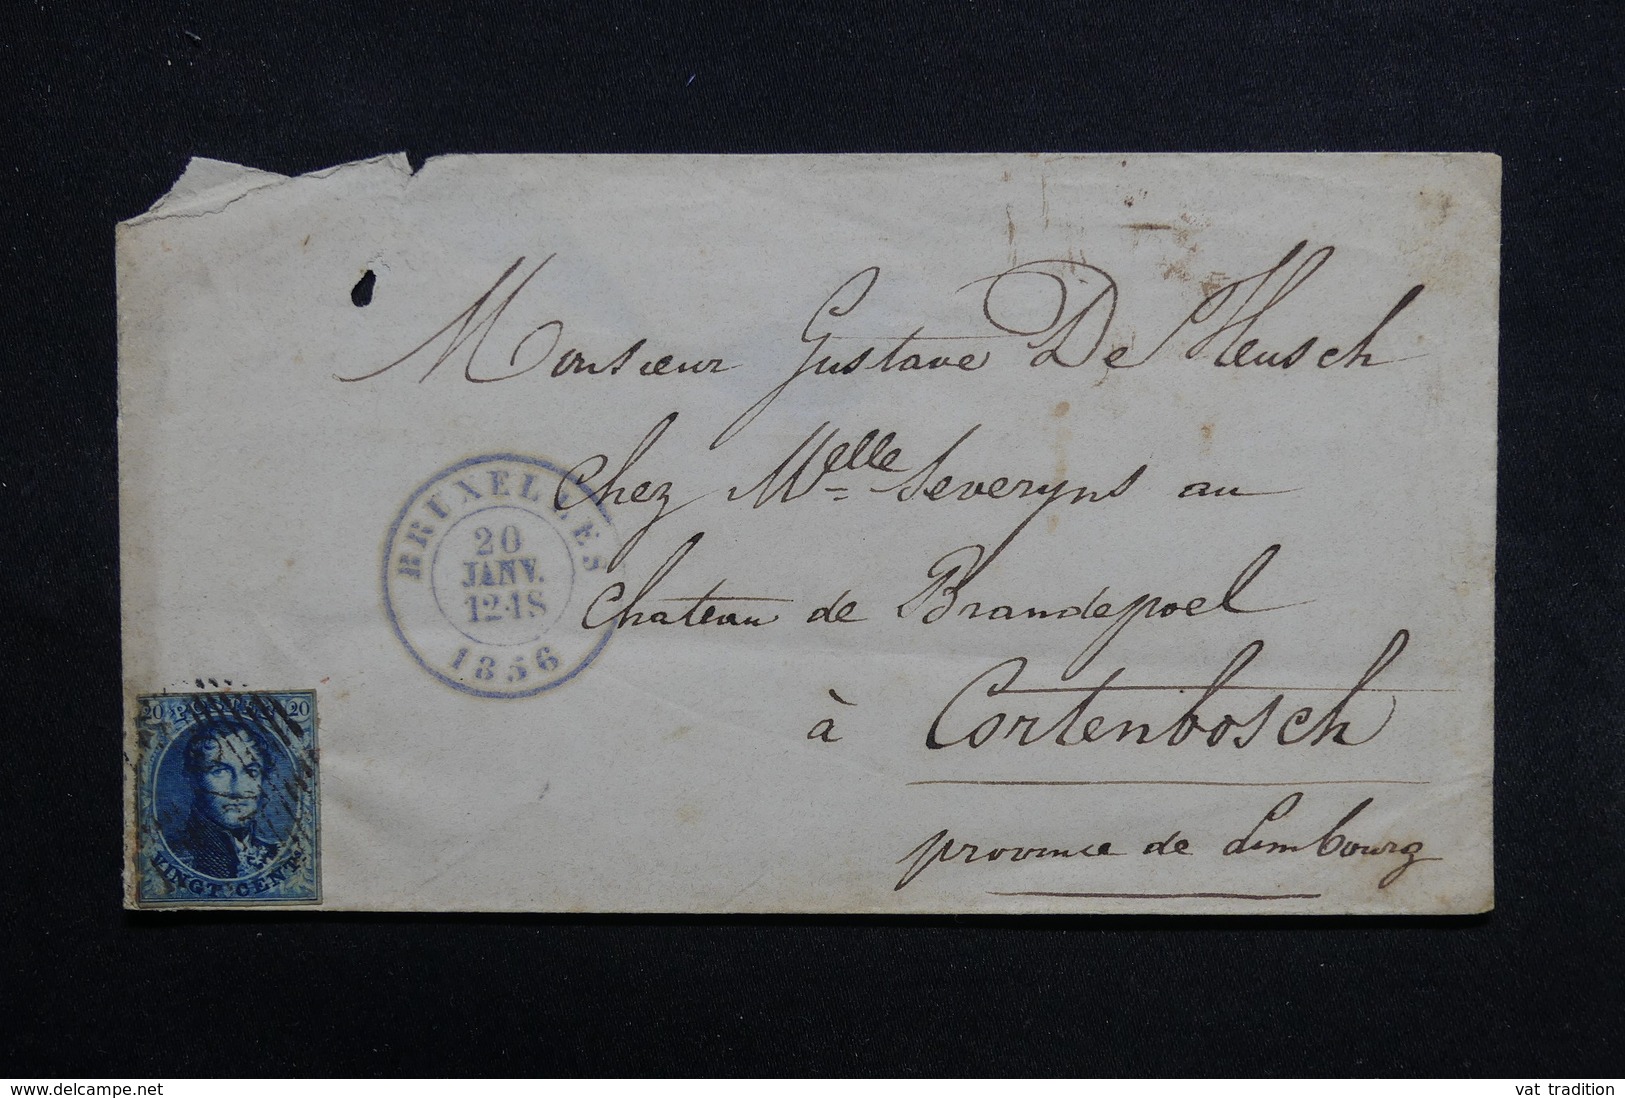 Monsieur Gustave De Heusch
chez Melle Severyns au
Chateau de Brandepoel
à Cortenbosch
province de Limbourg
BRUXELLES
20
JANV.
12-1S
1856
20 20
VINGT CENTS
www.delcampe.net
vat tradition